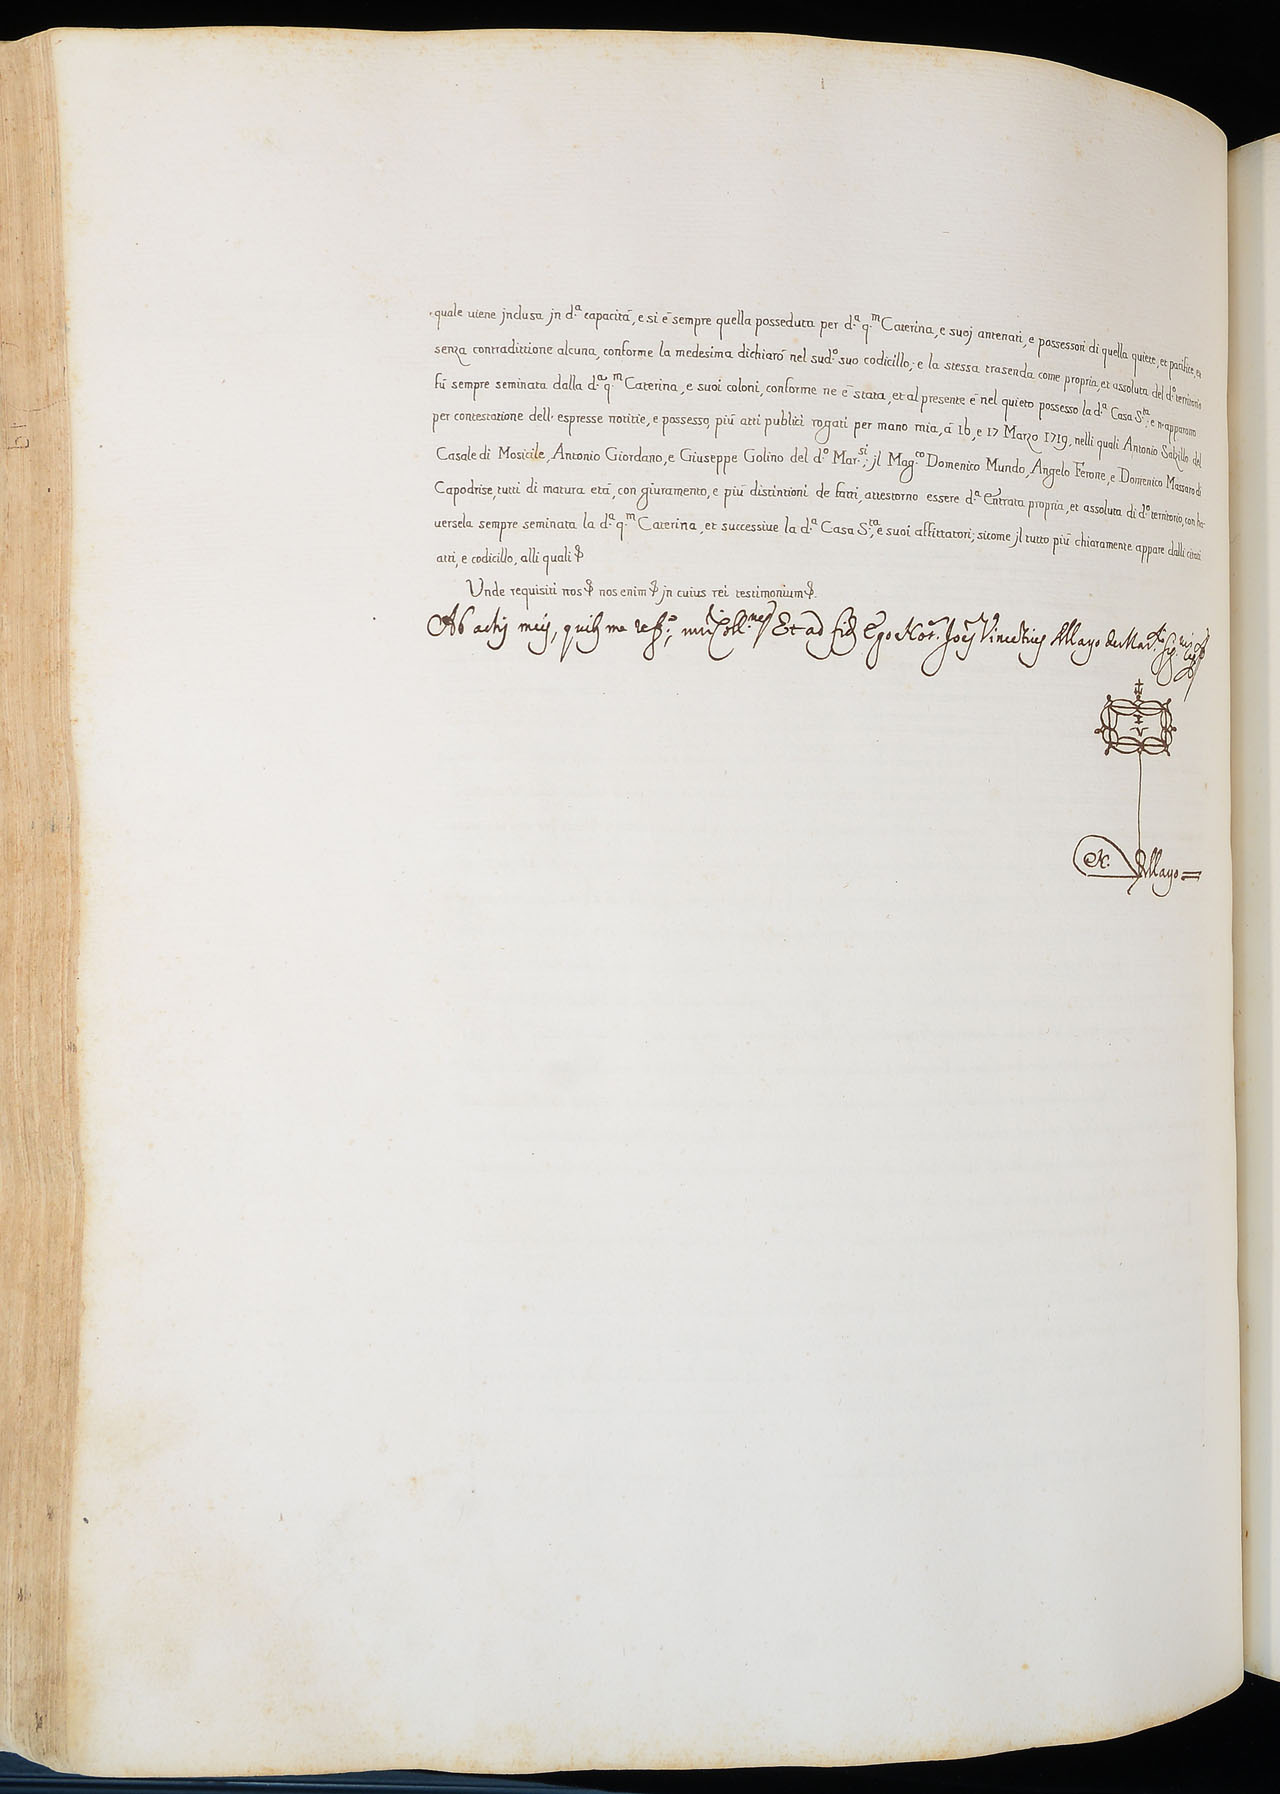 quale uiene jnclusa jn d.ª capacitá, e si é sempre quella posseduta per d.ª q.ᵐ Caterina, e suoj antenati, e possessori di quella quiete, et pacifice, et
senza contradittione alcuna, conforme la medesima dichiaró nel sud.º suo codicillo; e la stessa trasenda come propria, et assoluta del d.º territorio
fú sempre seminata dalla d.ª q.ᵐ Caterina, e suoi coloni, conforme ne é stata, et al presente é nel quieto possesso la d.ª Casa S.ᵗᵃ, e n'apparono
per contestatione dell' espresse notitie, e possesso, piú atti publici rogati per mano mia, á 16, e 17 Marzo 1719, nelli quali Antonio Sabillo del
Casale di Mosicile, Antonio Giordano, e Giuseppe Golino del d.º Mar.ˢⁱ; jl Mag.ᶜᵒ Domenico Mundo, Angelo Ferone, e Domenico Massaro di
Capodrise, tutti di matura etá, con giuramento, e piú distintioni de fatti, attestorno essere d.ª Entrata propria, et assoluta di d.º territorio, con ha-
uersela sempre seminata la d.ª q.ᵐ Caterina, et successiue la d.ª Casa S.ᵗᵃ, e suoi affittatori; sicome jl tutto piú chiaramente appare dalli citati
atti, e codicillo, alli quali
Unde requisiti nos nos enim jn cuius rei testimonium
Ab actis meis, quib; me Et ad fid Ego Not.
I
V
N. Mayo